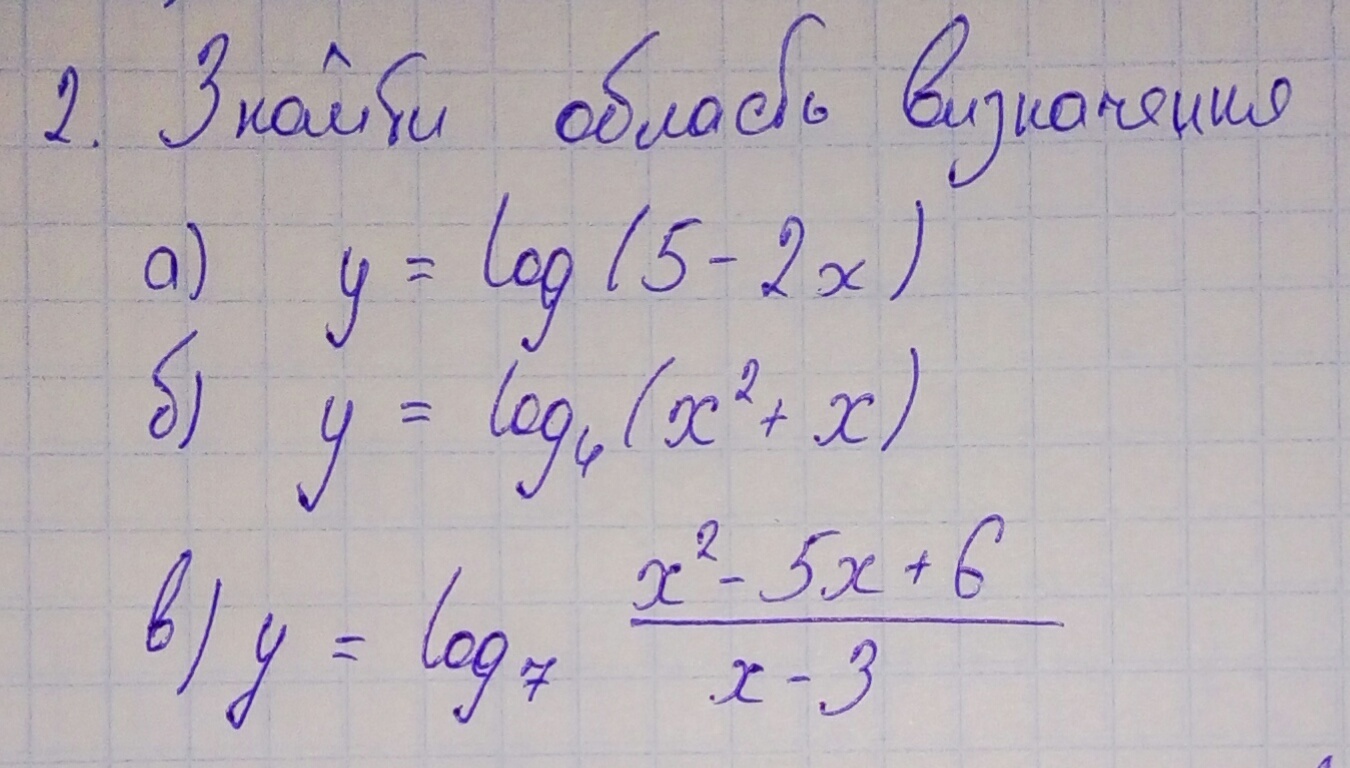 2. Знайти область визначення
а) y = log (5 - 2x)
б) y = log₄ (x² + x)
в) y = log₇ (x² - 5x + 6) / (x - 3)